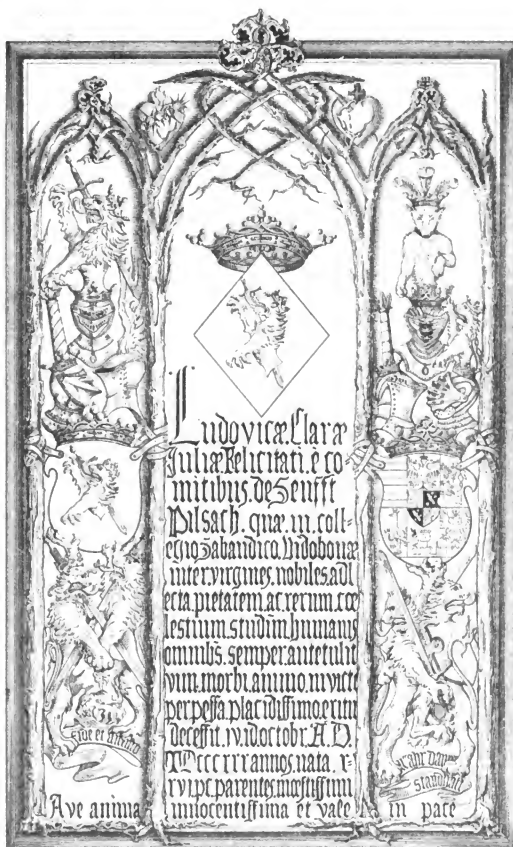 Ludovicæ Claræ
Juliæ Felicitati. è co
mitibus. de Senfft
Pilsach. quæ. in. coll-
egio Sabaudico. Vidobonæ
inter. virgines. nobiles. adl
ecta. pietatem. ac. rerum. cœ
lestium. studiũm. humanis
omnib₉. semper. antetulit
vim. morbi. animo. invicto
perpessa. placidissimo. exitu
decessit. IV. id. octobr. A. D.
MDCCCXXX annos. nata.
XVI. parentes. mœstissimi
Ave anima innocentissima et vale in pace
fide et
standhaft